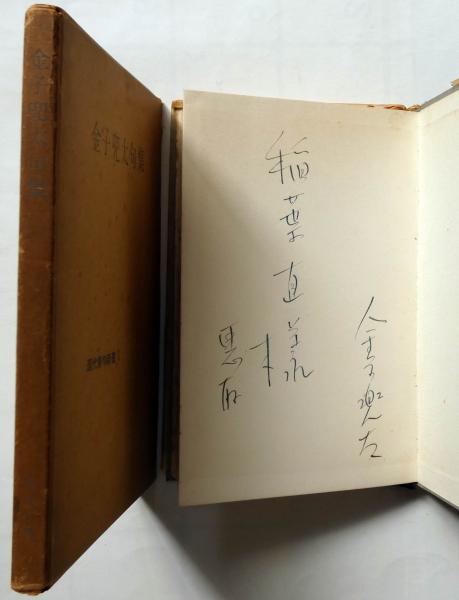 金子兜太句集
金子兜太句集
稲葉直様
恵存
金子兜太